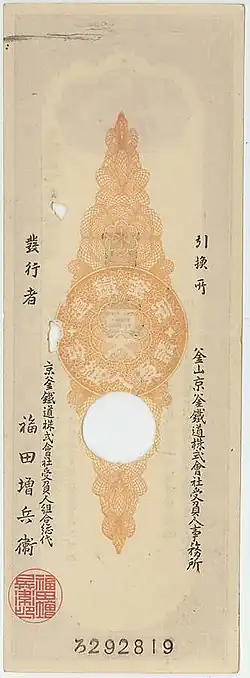 引換所
釜山京釜鐵道株式會社受負人事務所
發行者
京釜鐵道株式會社受負人組合總代
福田增兵衞
ろ292819